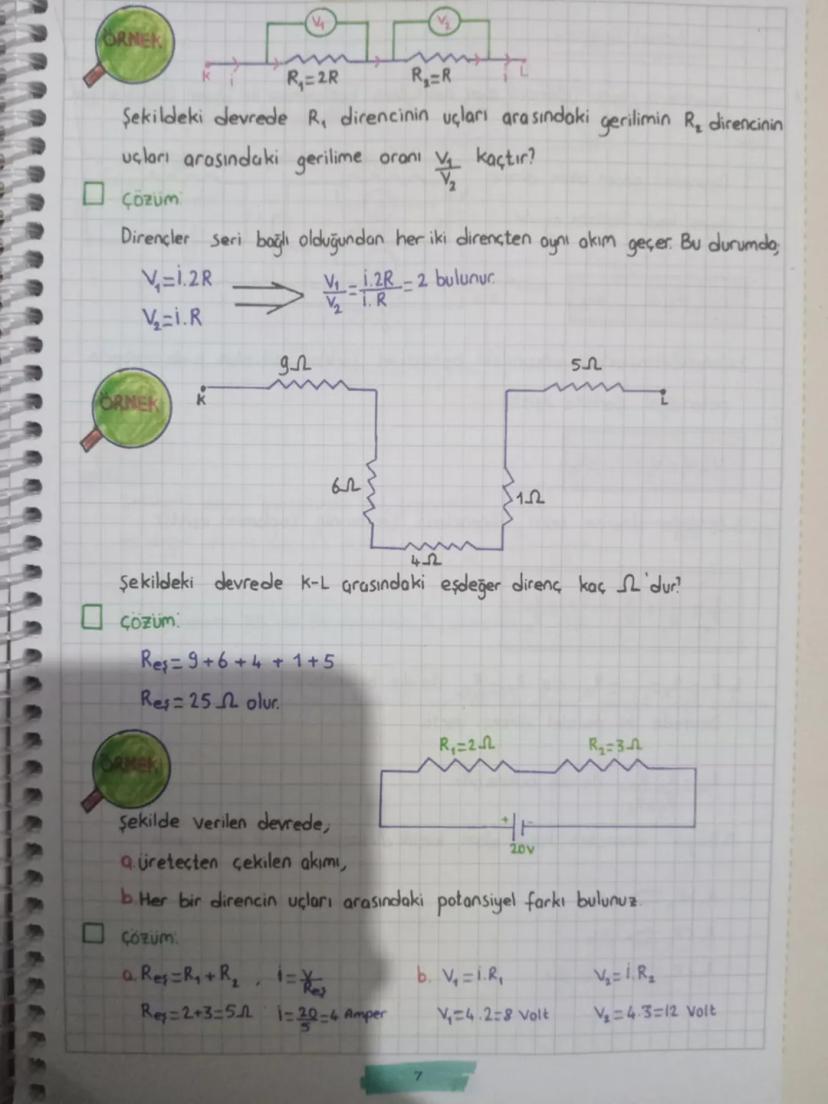 ÖRNEK
V₁
V₂
K
i
R₁=2R
R₂=R
i
L
Şekildeki devrede R₁ direncinin uçları arasındaki gerilimin R₂ direncinin
uçları arasındaki gerilime oranı V₁/V₂ kaçtır?
Çözüm:
Dirençler seri bağlı olduğundan her iki dirençten aynı akım geçer. Bu durumda;
V₁=i.2R
V₂=i.R
V₁/V₂ = i.2R/i.R = 2 bulunur.
ÖRNEK
K
9Ω
6Ω
4Ω
1Ω
5Ω
L
Şekildeki devrede K-L arasındaki eşdeğer direnç kaç Ω'dur?
Çözüm:
Reş=9+6+4+1+5
Reş=25Ω olur.
ÖRNEK
R₁=2Ω
R₂=3Ω
+ -
20V
Şekilde verilen devrede;
a. üreteçten çekilen akımı,
b. Her bir direncin uçları arasındaki potansiyel farkı bulunuz.
Çözüm:
a. Reş=R₁+R₂ , i=V/Reş
Reş=2+3=5Ω i=20/5=4 Amper
b. V₁=i.R₁ V₂=i.R₂
V₁=4.2=8 Volt V₂=4.3=12 Volt
7